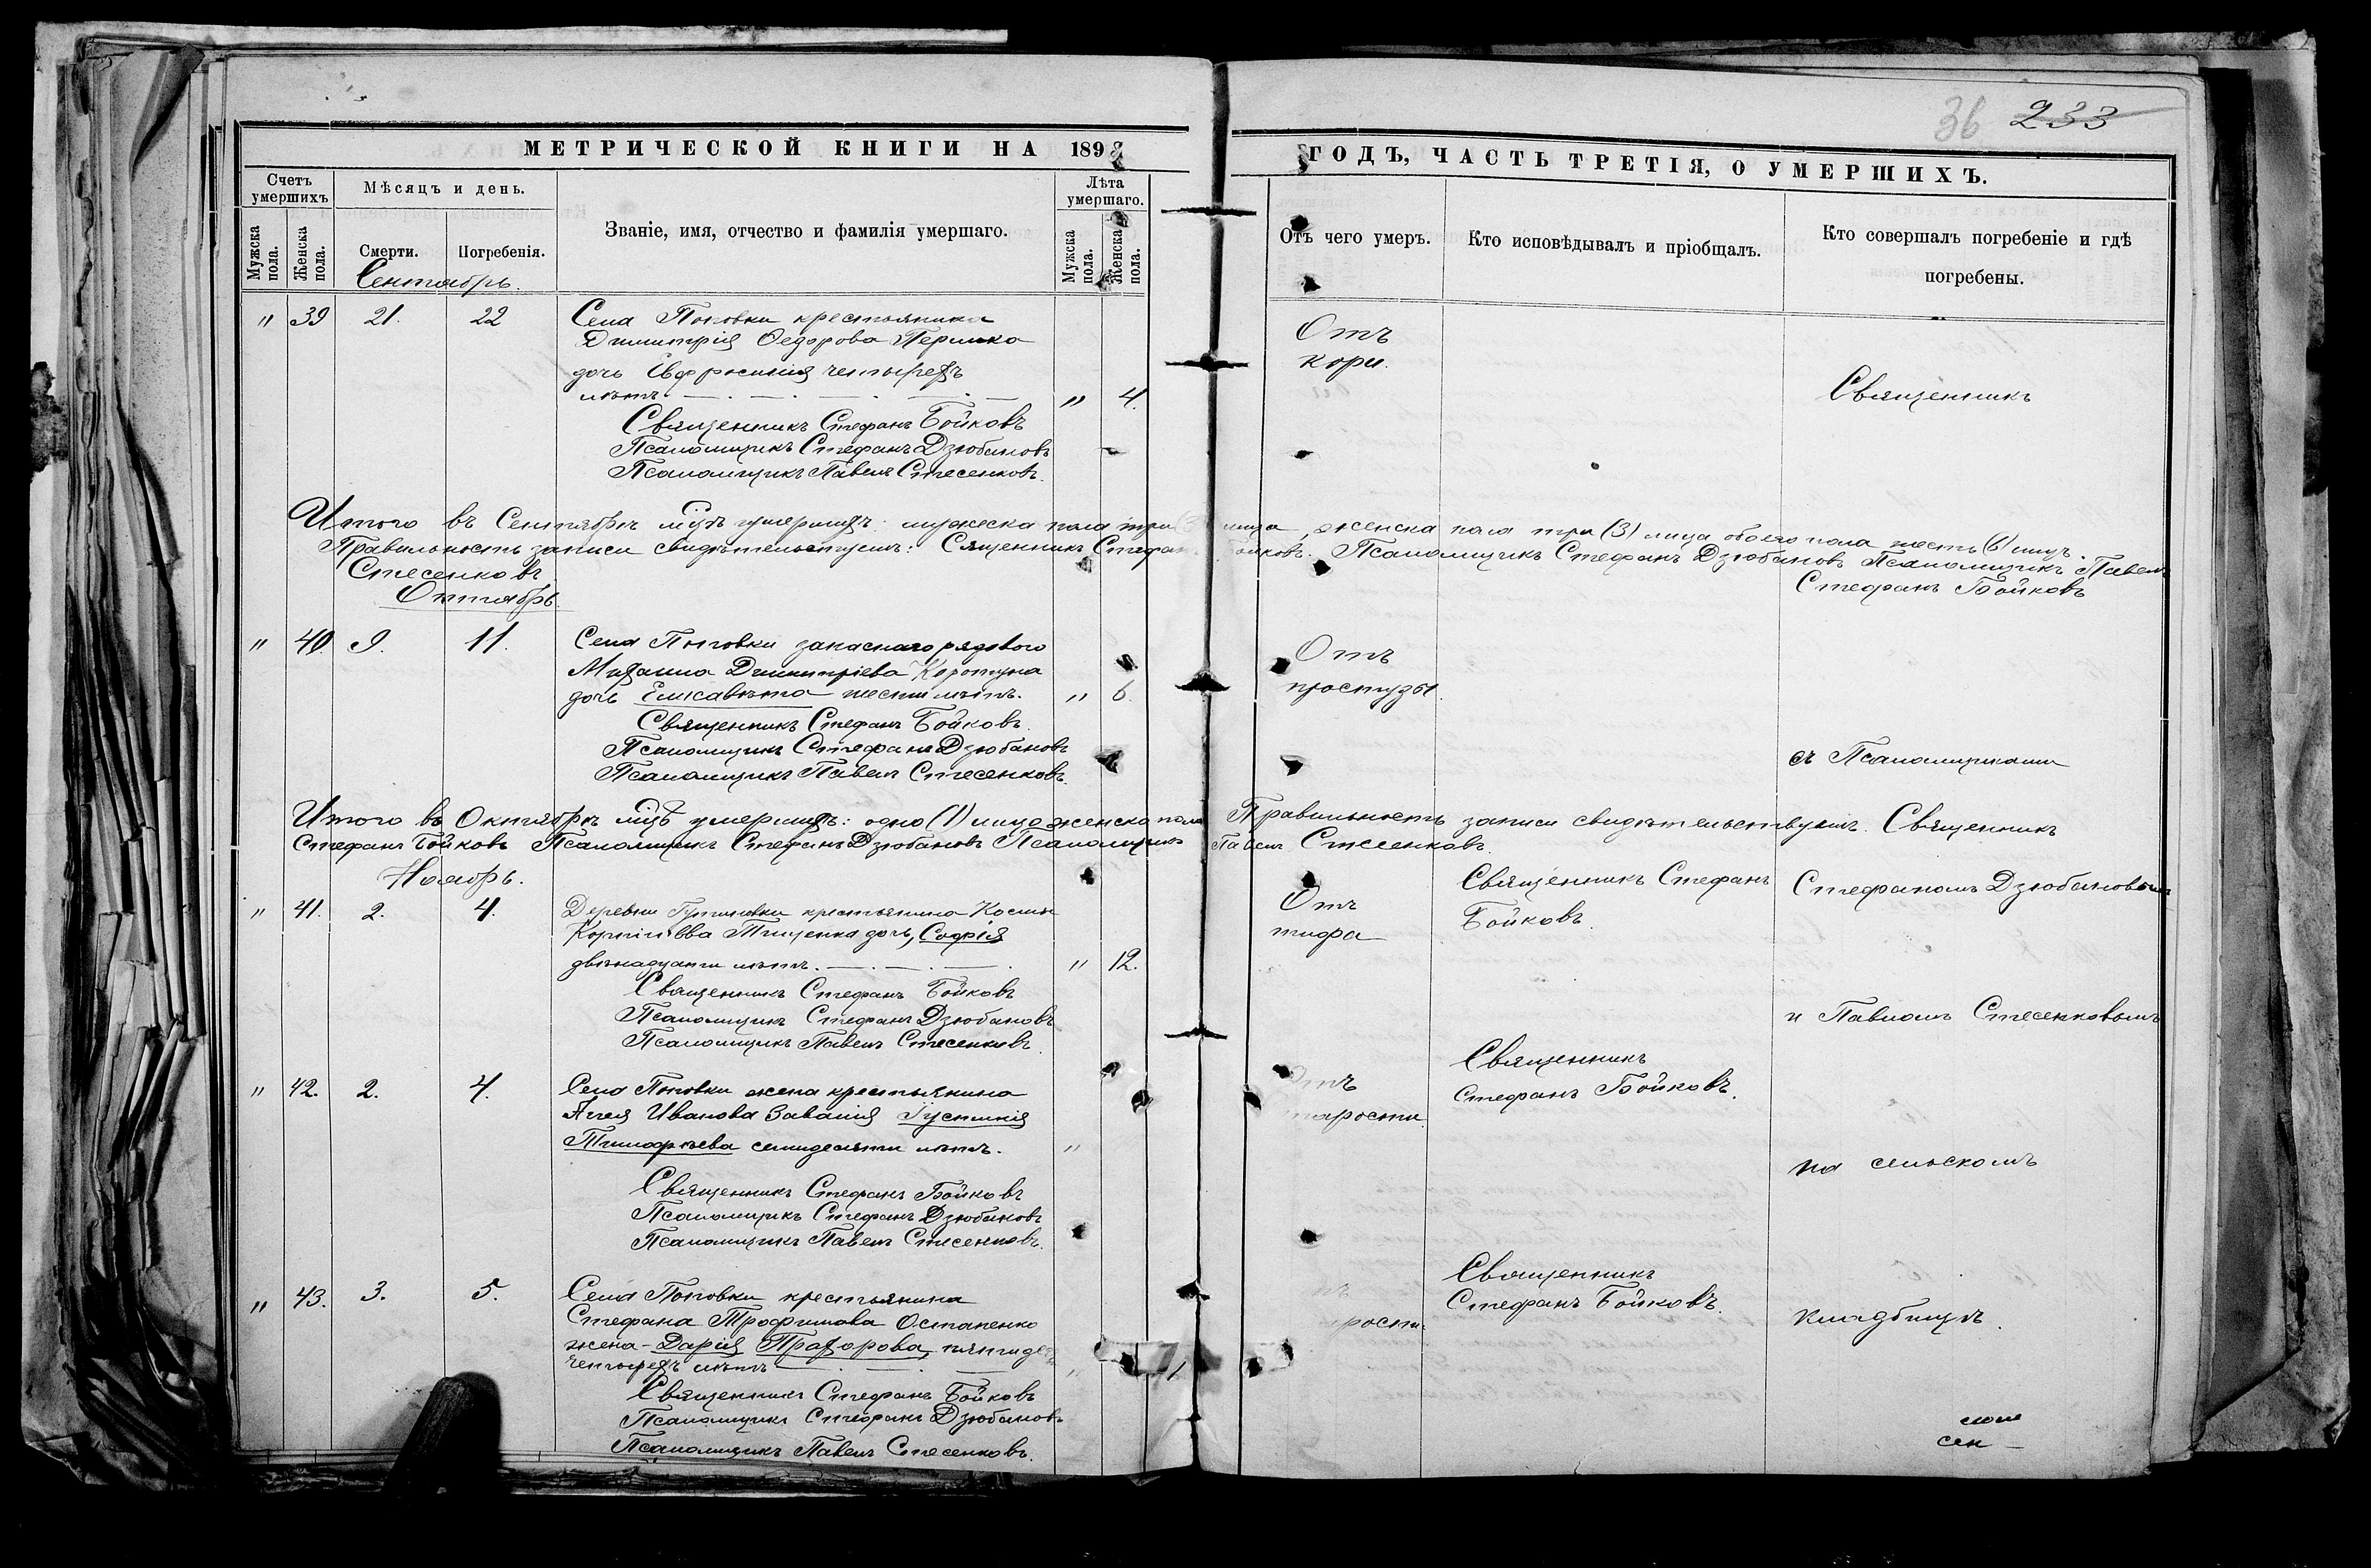 36 233
МЕТРИЧЕСКОЙ КНИГИ НА 1898
ГОДЪ, ЧАСТЬ ТРЕТІЯ, О УМЕРШИХЪ.
Счетъ умершихъ
Мужска пола.
Женска пола.
Мѣсяцъ и день.
Смерти.
Погребенія.
Званіе, имя, отчество и фамилія умершаго.
Лѣта умершаго.
Мужска пола.
Женска пола.
Отъ чего умеръ.
Кто исповѣдывалъ и пріобщалъ.
Кто совершалъ погребеніе и гдѣ
погребены.
Сентябрь.
" 39 21. 22 Села Поповки крестьянина
Димитрія Ѳедорова
дочь Евфросинія четырехъ
лѣтъ. " 4.
Отъ
кори.
Священникъ
Священникъ Стефанъ Бойковъ
Псаломщикъ Стефанъ Дзюбановъ
Псаломщикъ Павелъ Стесенковъ.
Итого въ Сентябрѣ мцѣ умершихъ: мужеска пола три лица, женска пола три (3) лица обоего пола шесть (6) лицъ.
Правильность записи свидѣтельствуемъ: Сященникъ Стефанъ Бойковъ. Псаломщикъ Стефанъ Дзюбановъ Псаломщикъ Павелъ
Стесенковъ
Стефанъ Бойковъ
Октябрь.
" 40. 9. 11. Села Поповки запаснаго рядового
Михаила Димитріева Коротуна
дочь Елисавета шести лѣтъ. " 6.
Отъ
простуды.
Священникъ Стефанъ Бойковъ.
Псаломщикъ Стефанъ Дзюбановъ
Псаломщикъ Павелъ Стесенковъ.
съ Псаломщиками
Итого въ Октябрѣ мцѣ умершихъ: одно (1) лицо женска пола Правильность записи свидѣтельствуемъ. Священникъ
Стефанъ Бойковъ Псаломщикъ Стефанъ Дзюбановъ Псаломщикъ Павелъ Стесенковъ.
Ноябрь.
" 41. 2. 4. Деревни крестьянина Космы
Тищенка дочь, Софія
двѣнадцати лѣтъ. " 12.
Отъ
тифа
Священникъ Стефанъ
Бойковъ.
Стефаномъ Дзюбановымъ
Священникъ Стефанъ Бойковъ
Псаломщикъ Стефанъ Дзюбановъ
Псаломщикъ Павелъ Стесенковъ.
и Павломъ Стесенковымъ
" 42. 2. 4. Села Поповки жена крестьянина
Аггея Иванова Іустинія
Тимофѣева семидесяти лѣтъ. "
Отъ
старости.
Священникъ
Стефанъ Бойковъ.
на сельскомъ
Священникъ Стефанъ Бойковъ
Псаломщикъ Стефанъ Дзюбановъ
Псаломщикъ Павелъ Стесенковъ.
" 43. 3. 5. Села Поповки крестьянина
Стефана Трофимова Остапенко
жена - Дарія Прохорова,
четырехъ лѣтъ
Священникъ
Стефанъ Бойковъ.
кладбищѣ.
Священникъ Стефанъ Бойковъ
Псаломщикъ Стефанъ Дзюбановъ
Псаломщикъ Павелъ Стесенковъ.